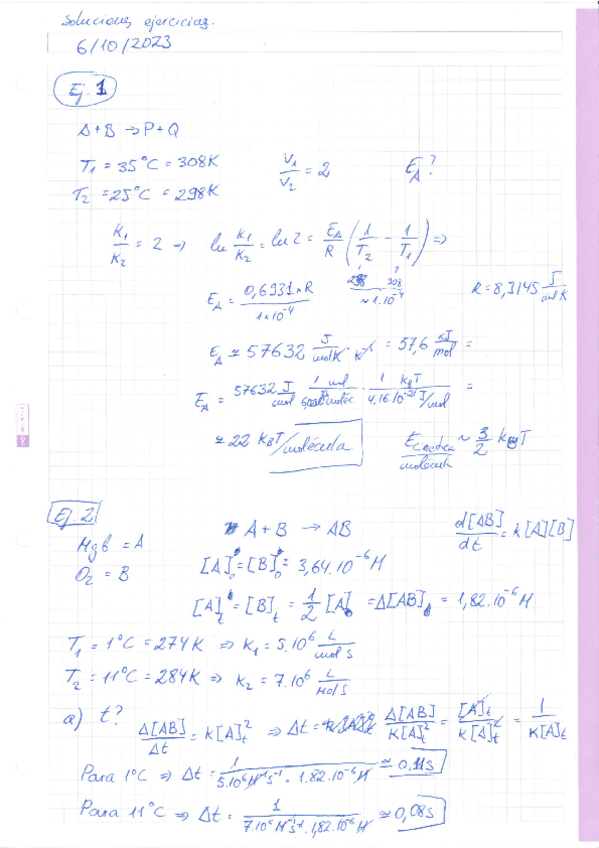 Soluciones ejercicios.
6/10/2023
Ej. 1
A + B → P + Q
T1 = 35°C = 308K   V1/V2 = 2   EA?
T2 = 25°C = 298K
K1/K2 = 2 → ln K1/K2 = ln 2 = EA/R (1/T2 - 1/T1) ⇒
298 308
EA = 0,6931 × R / 1×10^-4   ≈ 1·10^-4   R = 8,3145 J/mol K
EA ≃ 57632 J/molK · K^-1 = 57,6 KJ/mol =
EA = 57632 J/mol · 1 mol / · 1 / 4,16·10^-21 J/mol KBT =
≃ 22 KBT/molécula   Ecinética/molécula ~ 3/2 KBT
Ej. 2   A + B → AB   d[AB]/dt = k[A][B]
Mgb = A
O2 = B   [A]0 = [B]0 = 3,64·10^-6 M
[A]t = [B]t = 1/2 [A]0 = Δ[AB] = 1,82·10^-6 M
T1 = 1°C = 274K ⇒ K1 = 5·10^6 L/mol s
T2 = 11°C = 284K ⇒ K2 = 7·10^6 L/mol s
a) t?   Δ[AB]/Δt = K[A]t^2 ⇒ Δt = Δ[AB]/K[A]t^2 = [A]t/K[A]t^2 = 1/K[A]t
Para 1°C ⇒ Δt = 1 / 5·10^6 M^-1 s^-1 · 1.82·10^-6 M ≃ 0,11s
Para 11°C ⇒ Δt = 1 / 7·10^6 M^-1 s^-1 · 1,82·10^-6 M ≃ 0,08s